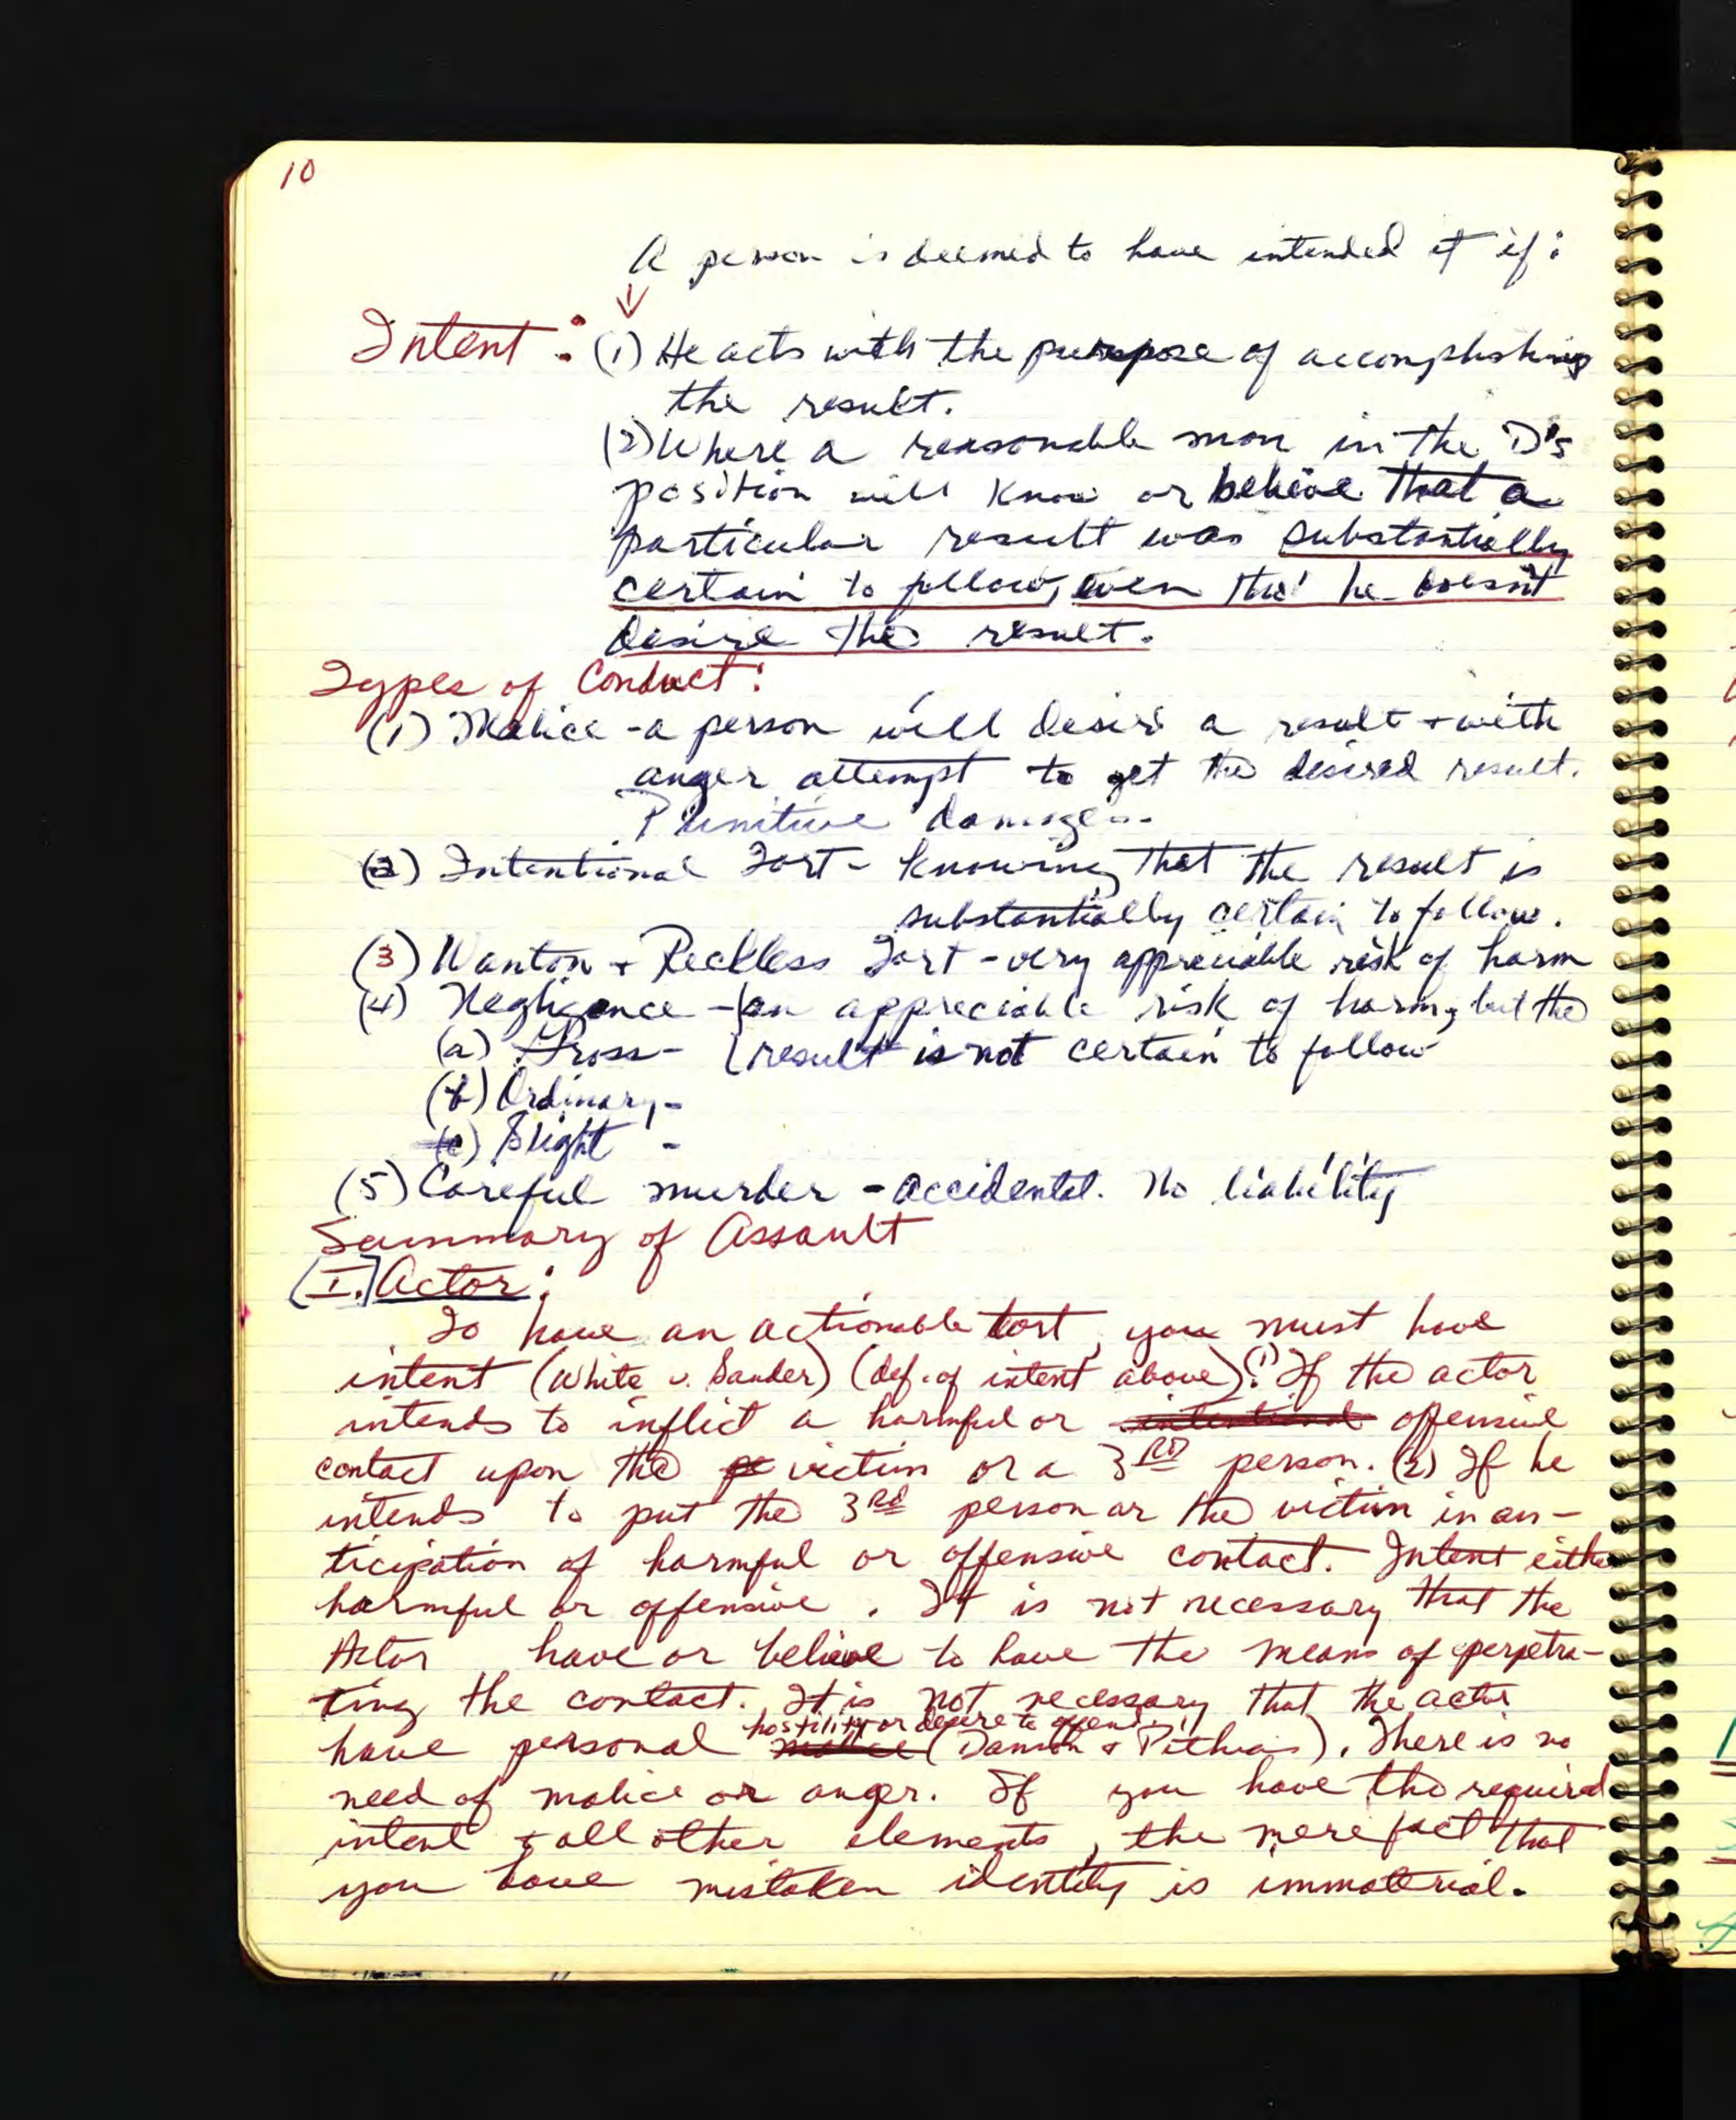 10
A person is deemed to have intended it if:
Intent: (1) He acts with the purpose of accomplishing
the result.
(2) Where a reasonable man in the D's
position will know or believe that a
particular result was substantially
certain to follow, even tho' he doesn't
desire the result.
Types of Conduct:
(1) Malice - a person will desire a result + with
anger attempt to get the desired result.
Punitive damages.
(2) Intentional Tort - knowing that the result is
substantially certain to follow.
(3) Wanton + Reckless Tort - very appreciable risk of harm
(4) Negligence - an appreciable risk of harm, but the
(a) Gross - result is not certain to follow
(b) Ordinary -
(c) Slight -
(5) Careful murder - accidental. No liability
Summary of Assault
[I.] Actor:
To have an actionable tort, you must have
intent (White v. Sander) (def. of intent above). (1) If the actor
intends to inflict a harmful or intentional offensive
contact upon the victim or a 3RD person. (2) If he
intends to put the 3RD person or the victim in an-
ticipation of harmful or offensive contact. Intent either
harmful or offensive. It is not necessary that the
Actor have or believe to have the means of perpetra-
ting the contact. It is not necessary that the actor
hostility or desire to offend
have personal malice (Damon + Pithias). There is no
need of malice or anger. If you have the required
intent + all other elements, the mere fact that
you have mistaken identity is immaterial.